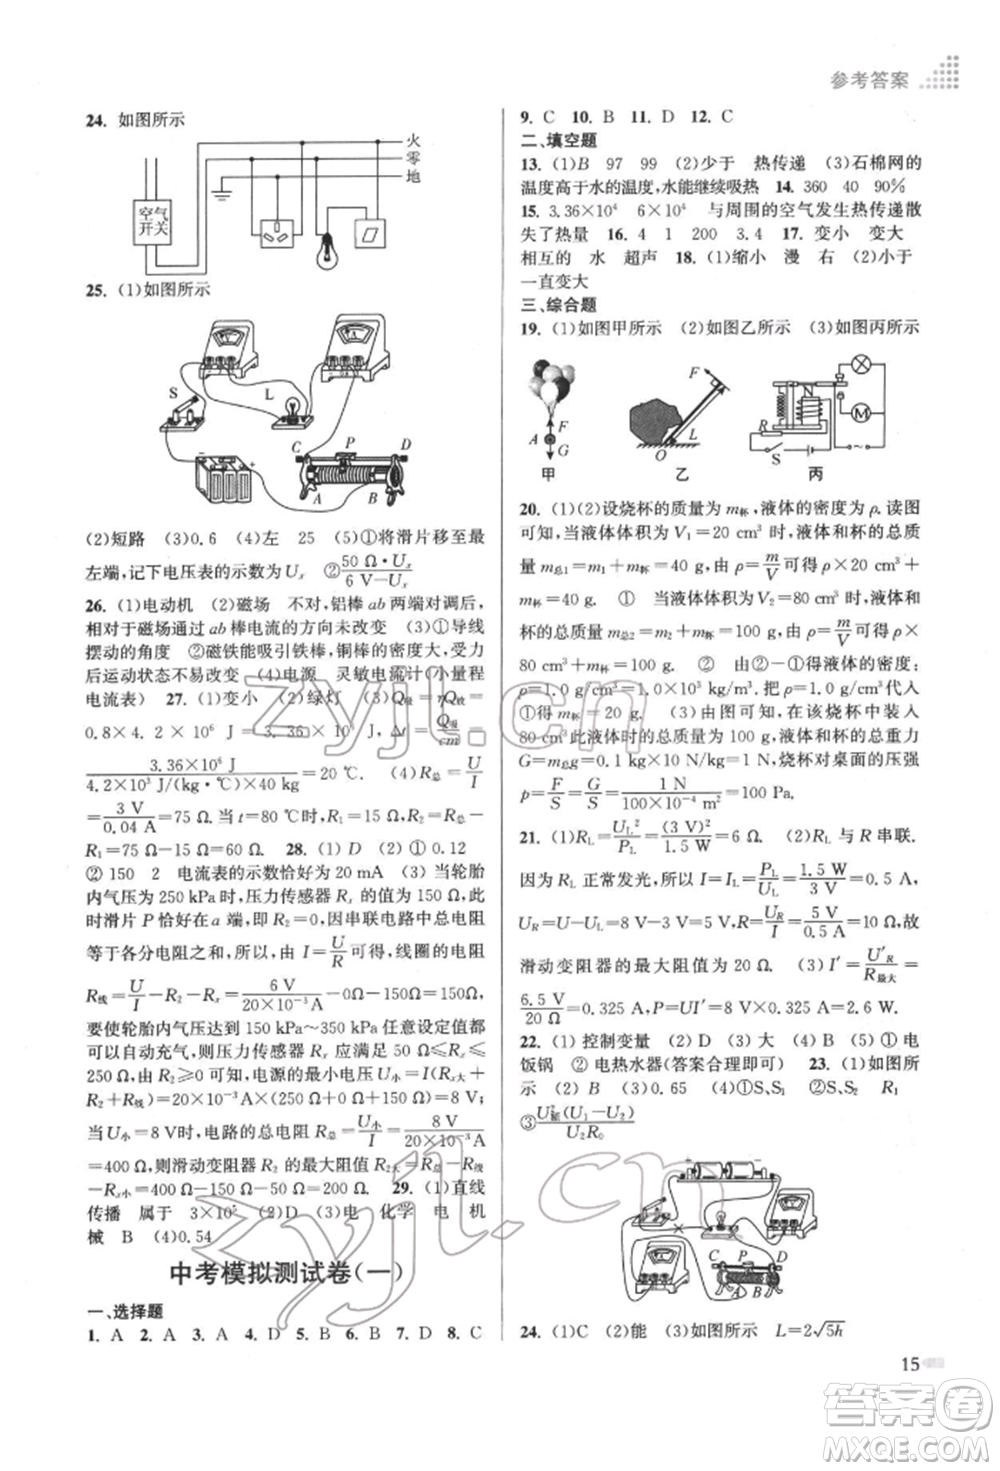 参考答案
24. 如图所示
火
零
地
空气
开关
25. (1)如图所示
S
L
C P D
A B
(2)短路 (3)0.6 (4)左 25 (5)①将滑片移至最
左端,记下电压表的示数为Uₓ ②50 Ω·Uₓ/(6 V−Uₓ)
26. (1)电动机 (2)磁场 不对,铝棒 ab 两端对调后,
相对于磁场通过 ab 棒电流的方向未改变 (3)①导线
摆动的角度 ②磁铁能吸引铁棒,铜棒的密度大,受力
后运动状态不易改变 (4)电源 灵敏电流计(小量程
电流表) 27. (1)变小 (2)绿灯 (3)Q吸=ηQ放=
0.8×4.2×10⁶ J=3.36×10⁶ J, Δt=Q吸/cm=
3.36×10⁶ J/(4.2×10³ J/(kg·℃)×10 kg)=20 ℃. (4)R总=U/I
=3 V/0.04 A=75 Ω. 当 t=80 ℃时,R₁=15 Ω,R₂=R总−
R₁=75 Ω−15 Ω=60 Ω. 28. (1) D (2)① 0.12
② 150 2 电流表的示数恰好为 20 mA (3) 当轮胎
内气压为 250 kPa 时,压力传感器 Rₓ 的值为 150 Ω,
此时滑片 P 恰好在 a 端,即 R₂=0,因串联电路中总电阻
等于各分电阻之和,所以,由 I=U/R可得,线圈的电阻
R线=U/I−R₂−Rₓ=6 V/(20×10⁻³ A)−0−150 Ω=150 Ω.
要使轮胎内气压达到 150 kPa～350 kPa 任意设定值都
可以自动充气,则压力传感器 Rₓ 应满足 50 Ω≤Rₓ≤
200 Ω,电源的最小电压为 U小=I(Rₓ大+
R线)=20×10⁻³ A×(250 Ω+150 Ω)=8 V.
当 U小=8 V时,电路的总电阻R总=U小/I=8 V/(20×10⁻³ A)
=400 Ω,则滑动变阻器 R₂ 的最大阻值 R₂大=R总−R线
−Rₓ小=400 Ω−150 Ω−50 Ω=200 Ω. 29. (1)直线
传播 属于 3×10⁵ (2)D (3)电 化学 电 机
械 B (4)0.54
中考模拟测试卷(一)
一、选择题
1. A 2. A 3. A 4. D 5. D 6. B 7. D 8. C
9. C 10. B 11. D 12. C
二、填空题
13. (1)B 97 99 (2)少于 热传递 (3)石棉网的
温度高于水的温度,水能继续吸热 14. 360 40 90%
15. 3.36×10⁴ 6×10⁴ 与周围的空气发生热传递散
失了热量 16. 4 1 200 3.4 17. 变小 变大
相互的 水 超声 18. (1)缩小 漫 右 (2)小于
一直变大
三、综合题
19. (1)如图甲所示 (2)如图乙所示 (3)如图丙所示
F
A
G
甲
F
L
O
乙
R
S
M
丙
20. (1)(2)设烧杯的质量为 m杯,液体的密度为 ρ. 读图
可知,当液体体积为 V₁=20 cm³ 时,液体和杯的总质
量 m总1=m₁+m杯=40 g. 由 ρ=m/V可得 ρ×20 cm³
+m杯=40 g. ① 当液体体积为 V₂=80 cm³时,液体和
杯的总质量 m总2=m₂+m杯=100 g. 由 ρ=m/V可得 ρ×
80 cm³+m杯=100 g. ② 由①②得液体的密度:
ρ=1.0 g/cm³=1.0×10³ kg/m³. 把 ρ=1.0 g/cm³代入
①得 m杯=20 g. (3)由图可知,在该烧杯中放入
80 cm³此液体时的总质量为100 g=0.1 kg,总重力
G=m总g=0.1 kg×10 N/kg=1 N. 烧杯对桌面的压强
p=F/S=G/S=1 N/(100×10⁻⁴ m²)=100 Pa.
21. (1)R_L=U_L²/P_L=(3 V)²/1.5 W=6 Ω. (2)R_L 与 R 串联.
因为 R_L 正常发光,所以 I=I_L=P_L/U_L=1.5 W/3 V=0.5 A,
U_R=U−U_L=8 V−3 V=5 V,R=U_R/I=5 V/0.5 A=10 Ω,故
滑动变阻器的最大阻值为 20 Ω. (3)I′=U′_R/R最大=
6.5 V/20 Ω=0.325 A,P=UI′=8 V×0.325 A=2.6 W.
22. (1) 控制变量 (2) D (3) 大 (4) A (5) ① 电
饭锅 ② 电热水器(答案合理即可) 23. (1)如图所
示 (2) B (3) 0.65 (4)①S、S₁ ②S、S₂ R₁
③U额²(U₁−U₂)/(U₂R₀)
C P D
A B
24. (1)C (2)能 (3)如图所示 L=2√5h
15
zyjl.cn
zyjl.cn
答案圈
MXQE.COM